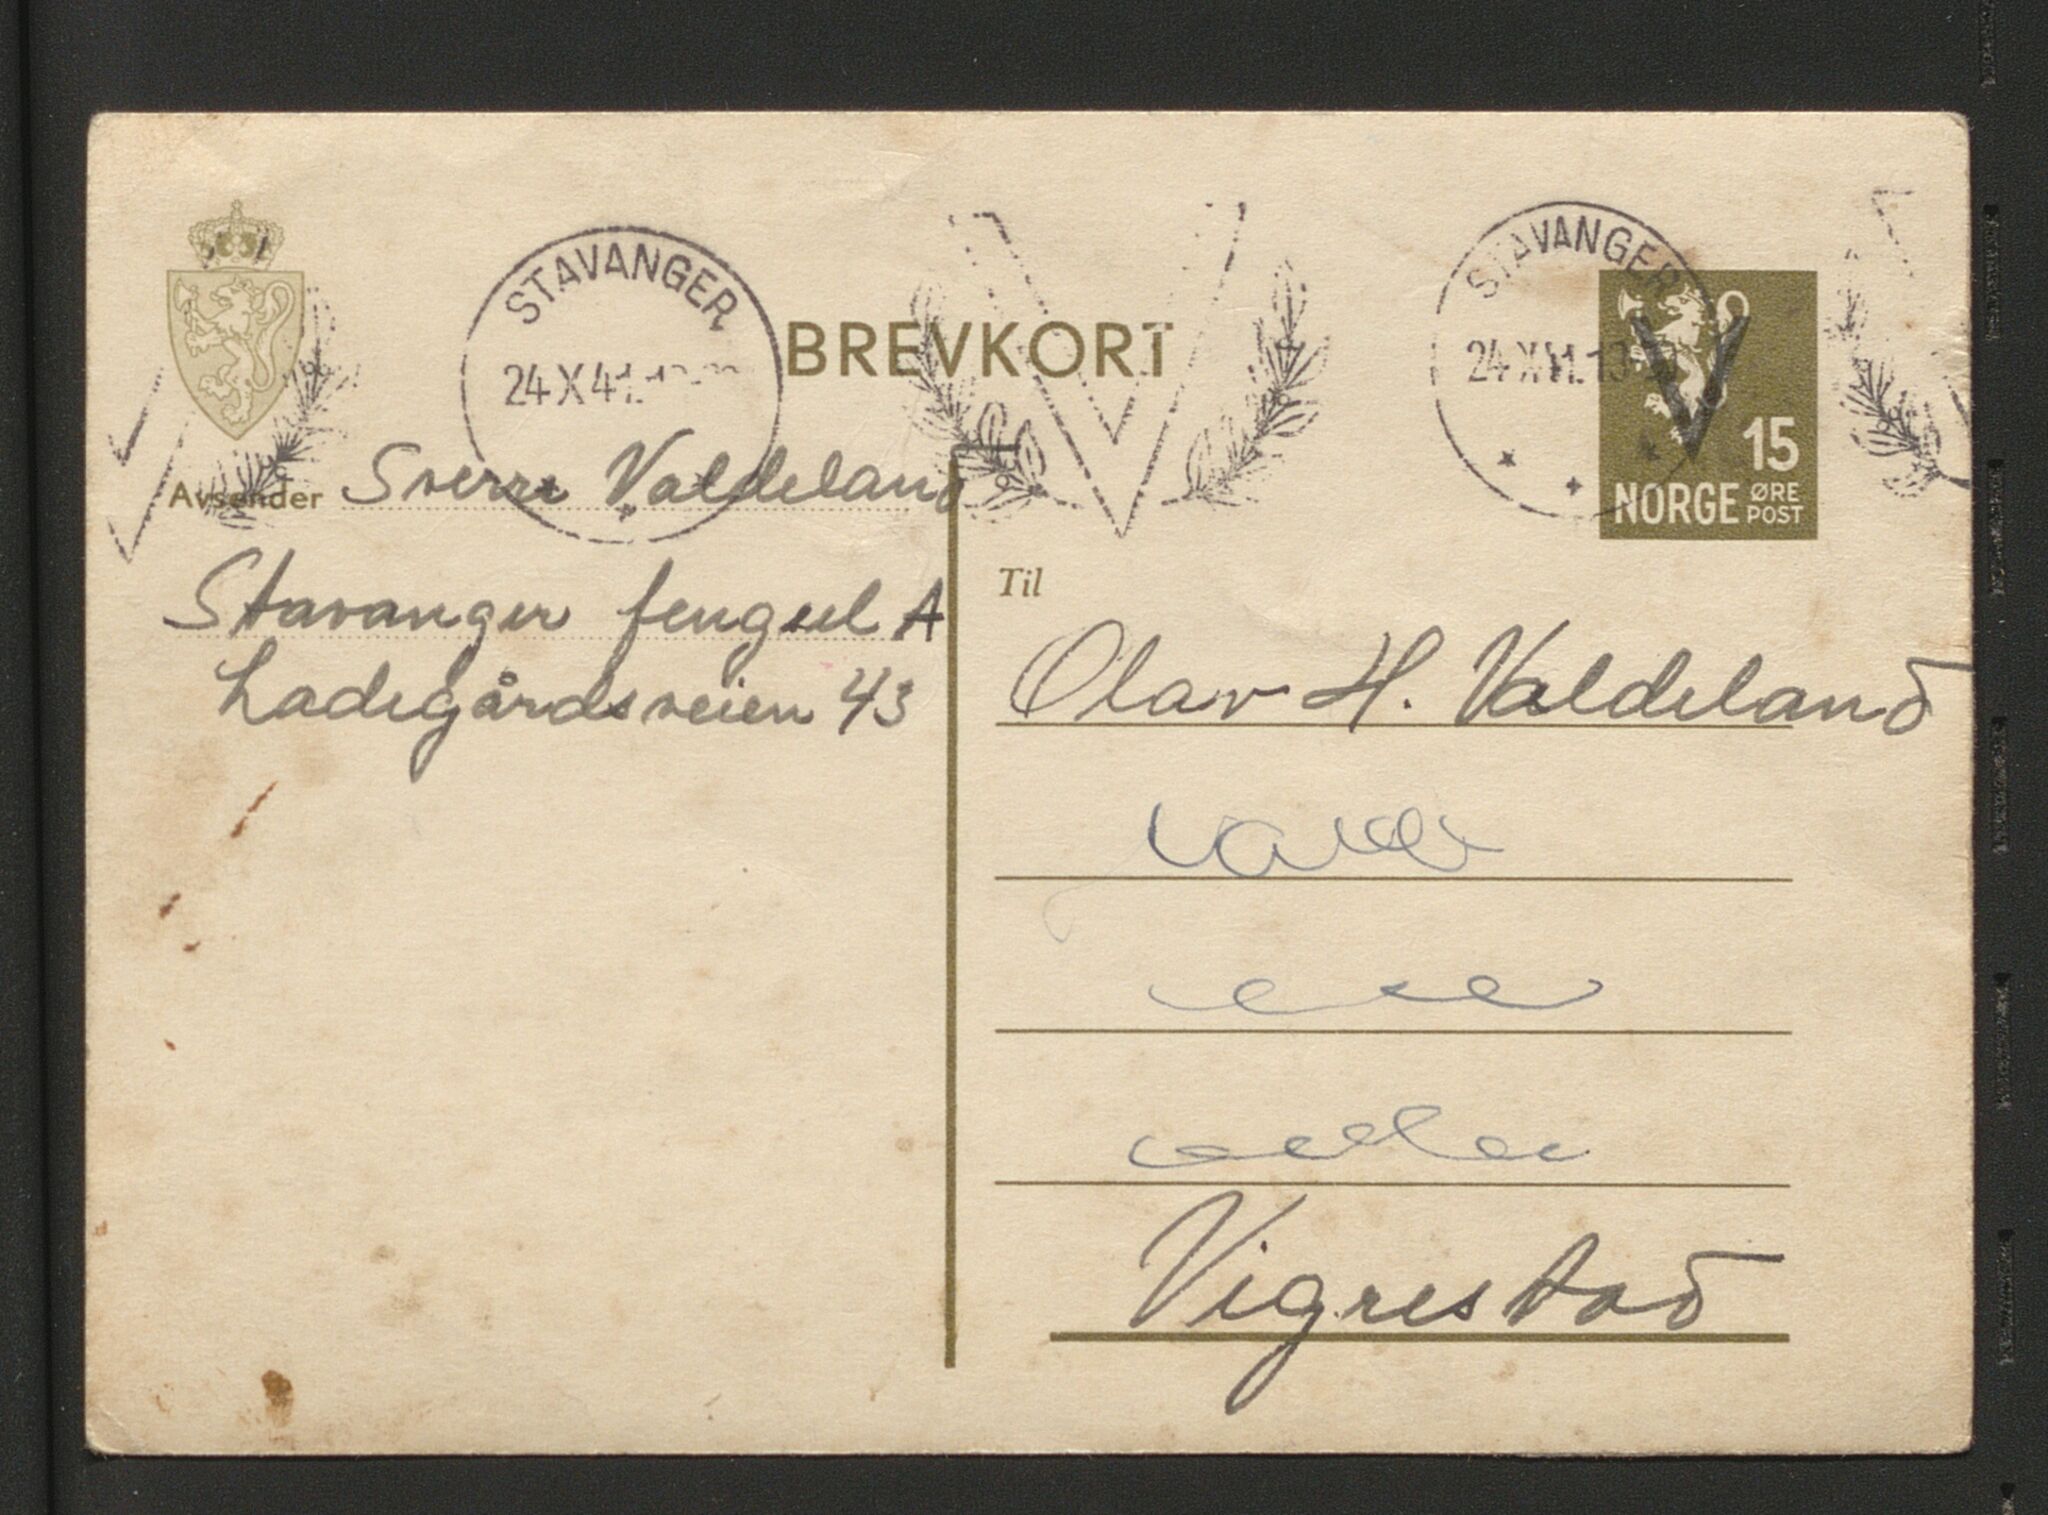 STAVANGER
24 X 41.
BREVKORT
STAVANGER
24 X 41. 13
15
NORGE ØRE POST
Avsender Sverre Valdeland
Stavanger fengsel A
Ladegårdsveien 43
Til
Olav H. Valdeland
Vigrestad